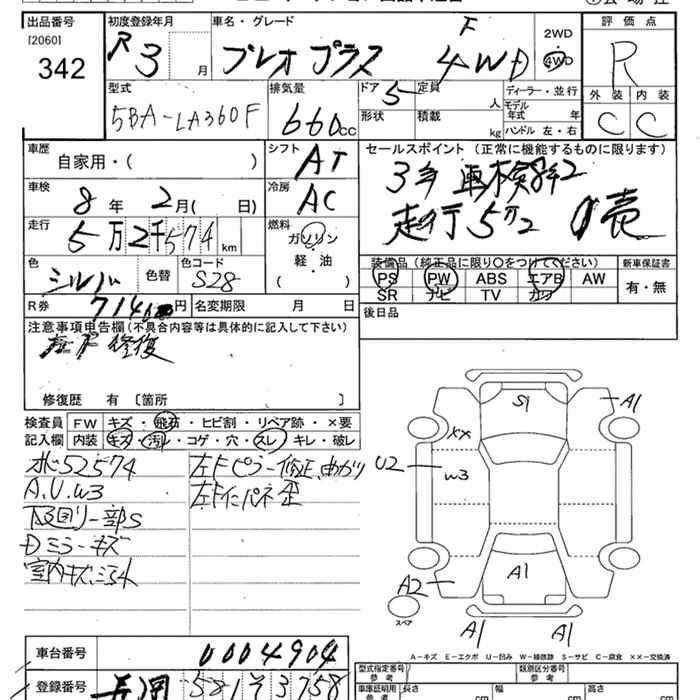 出品番号 初度登録年月 車名・グレード 評価点
[2060]
342
R3 月 プレオプラス F 4WD 2WD 4WD R
型式 排気量 ドア 定員 ディーラー・並行 外装 内装
5BA-LA360F 660cc 5 人 モデル年式 年 C C
形状 積載 kg ハンドル 左・右
車歴 シフト セールスポイント (正常に機能するものに限ります)
自家用・( ) AT 3年 車検8年2
車検 冷房
8年 2月( 日) AC 走行5万2
走行 燃料
5万2千574km ガソリン
色 色替 色コード 軽・油 装備品 (純正品に限り○をつけてください) 新車保証書
シルバー S28 ( ) PS PW ABS エアB AW 有・無
SR ナビ TV カワ
R券 円 名変期限 月 日 後日品
注意事項申告欄(不具合内容等は具体的に記入して下さい)
修復
修復歴 有 〔箇所 〕
検査員 FW キズ・飛石・ヒビ割・リペア跡・×要
記入欄 内装 キズ・汚れ・コゲ・穴・スレ・キレ・破レ
52574 左Fピラー修正、曲がり
A.U.W3 左Fインパネ歪
下回り一部S
Dミラーキズ
室内キズ、汚れ
S1 A1
XX
U2 W3
A1
A2
スペア
A1 A1
A-キズ E-エクボ U-凹み W-補修跡 S-サビ C-腐食 ××-交換済
車台番号 0004904 型式指定番号 参考 類別区分番号 参考
登録番号 581 そ 3758 車庫証明用 参考 長さ cm 幅 cm 高さ cm